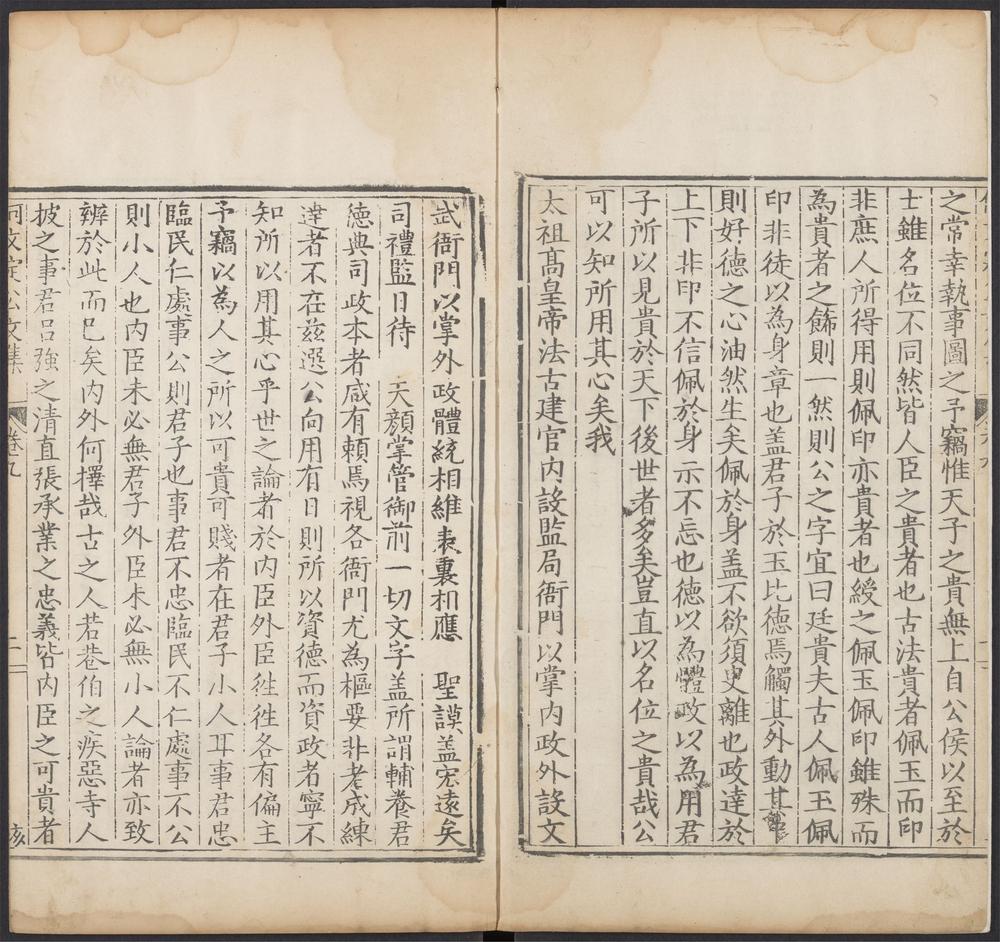 之常幸執事圖之予竊惟天子之貴無上自公侯以至於
士雖名位不同然皆人臣之貴者也古法貴者佩玉而印
非庶人所得用則佩印亦貴者也綬之佩玉佩印雖殊而
為貴者之飾則一然則公之字宜曰廷貴夫古人佩玉佩
印非徒以為身章也盖君子於玉比德焉觸其外動其
則好德之心油然生矣佩於身盖不欲須臾離也政達於
上下非印不信佩於身示不忘也德以為體政以為用君
子所以見貴於天下後世者多矣豈直以名位之貴哉公
可以知所用其心矣我
太祖高皇帝法古建官内設監局衙門以掌内政外設文
武衙門以掌外政體統相維表裏相應 聖謨盖宏遠矣
司禮監日待 天顔掌管御前一切文字盖所謂輔養君
德典司政本者咸有頼焉視各衙門尤為樞要非老成練
達者不在兹選公向用有日則所以資德而資政者寧不
知所以用其心乎世之論者於内臣外臣徃徃各有偏主
予竊以為人之所以可貴可賤者在君子小人耳事君忠
臨民仁處事公則君子也事君不忠臨民不仁處事不公
則小人也内臣未必無君子外臣未必無小人論者亦致
辨於此而已矣内外何擇哉古之人若巷伯之疾惡寺人
披之事君吕強之清直張承業之忠義皆内臣之可貴者
何文定公文集 卷九